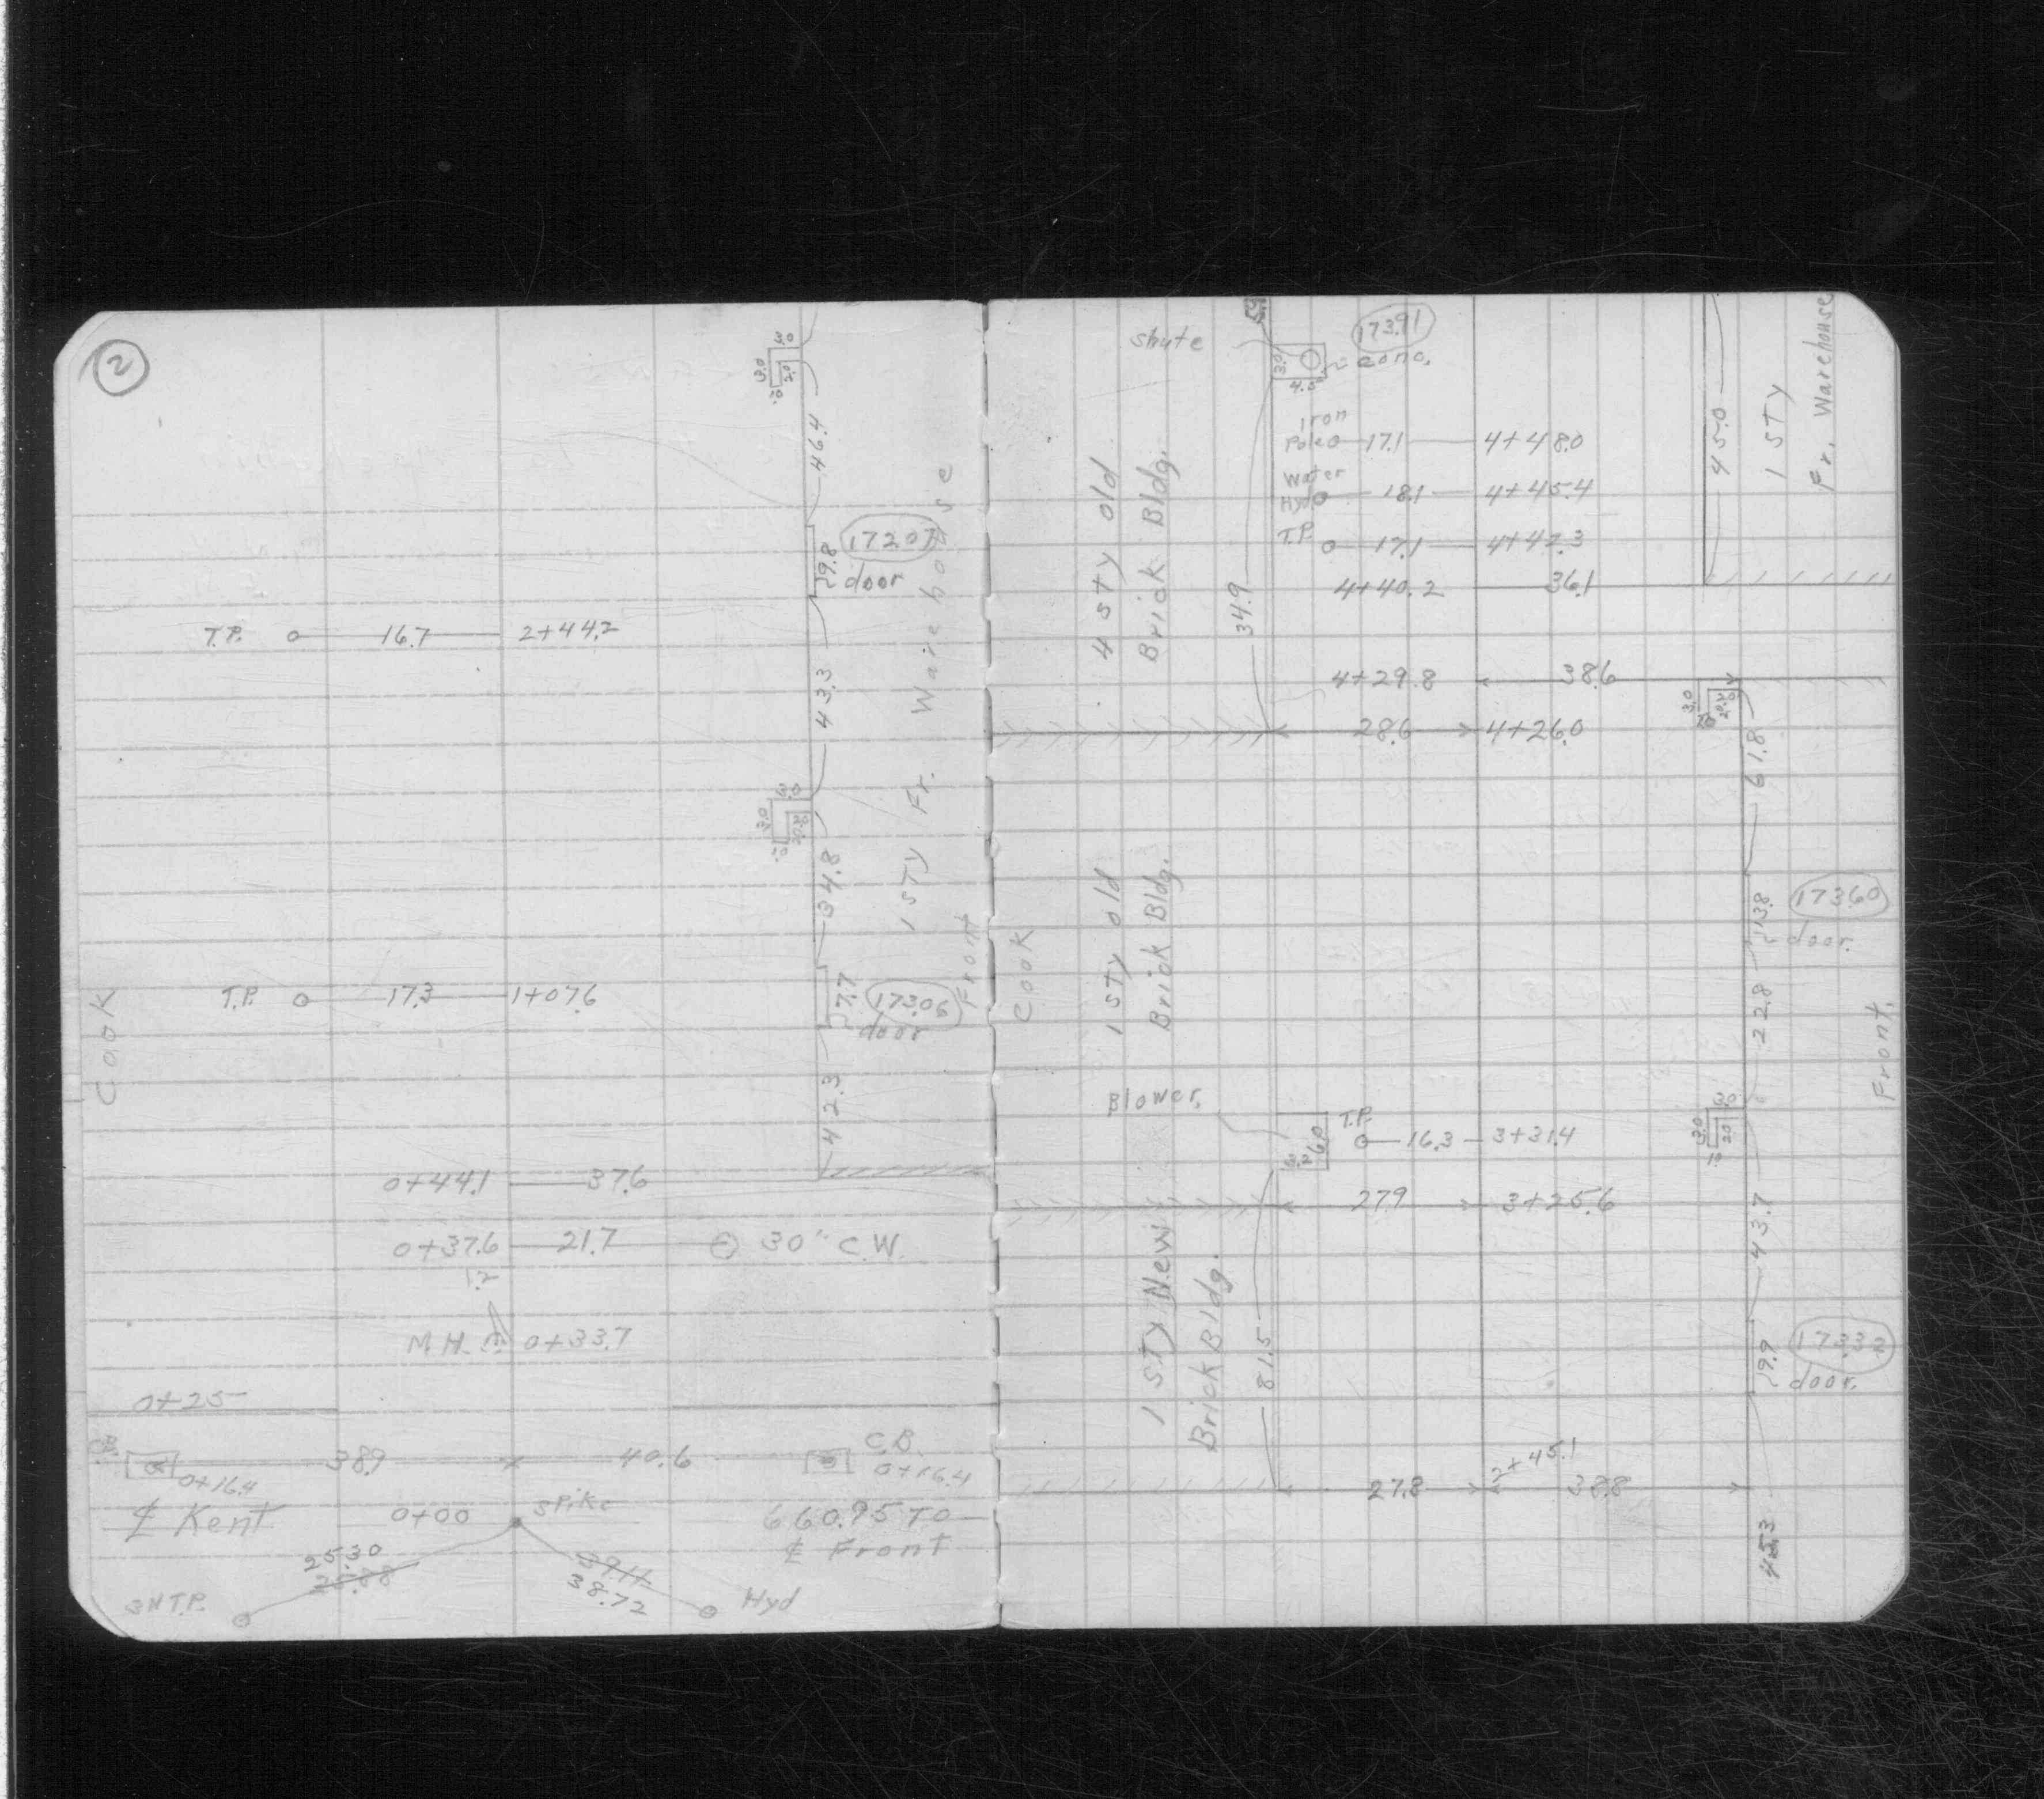 2
3.0
3.0
2.0
46.4
door
29.8
T.P. 16.7 2+44.2
43.3
1 STY Fr. Warehouse
3.0
3.0
34.8
Front
Cook
T.P. 17.3 1+07.6
27.7
173.06
door
42.3
0+44.1 37.6
0+37.6 21.7 30" C.W.
1.2
M.H. 0+33.7
0+25
C.B. 38.9 40.6 C.B.
0+16.4 0+16.4
℄ Kent 0+00 spike 660.95 To
℄ Front
25.30
38.72
3N T.P. Hyd
shute
173.91
conc.
3.0
4.5
Iron
Pole 17.1 4+48.0
Water
Hyd 18.1 4+45.4
T.P. 17.1 4+42.3
4+40.2 36.1
45.0
1 STY
Fr. Warehouse
4 STY old
Brick Bldg.
34.9
4+29.8 38.6
28.6 4+26.0
3.0
61.8
1 STY old
Brick Bldg.
Cook
13.8
173.60
door.
22.8
Front.
Blower.
T.P. 16.3 3+31.4
6.0
3.0
3.0
27.9 3+25.6
43.7
1 STY New
Brick Bldg.
81.5
29.9
173.33
door.
27.8 2+45.1 38.8
45.3